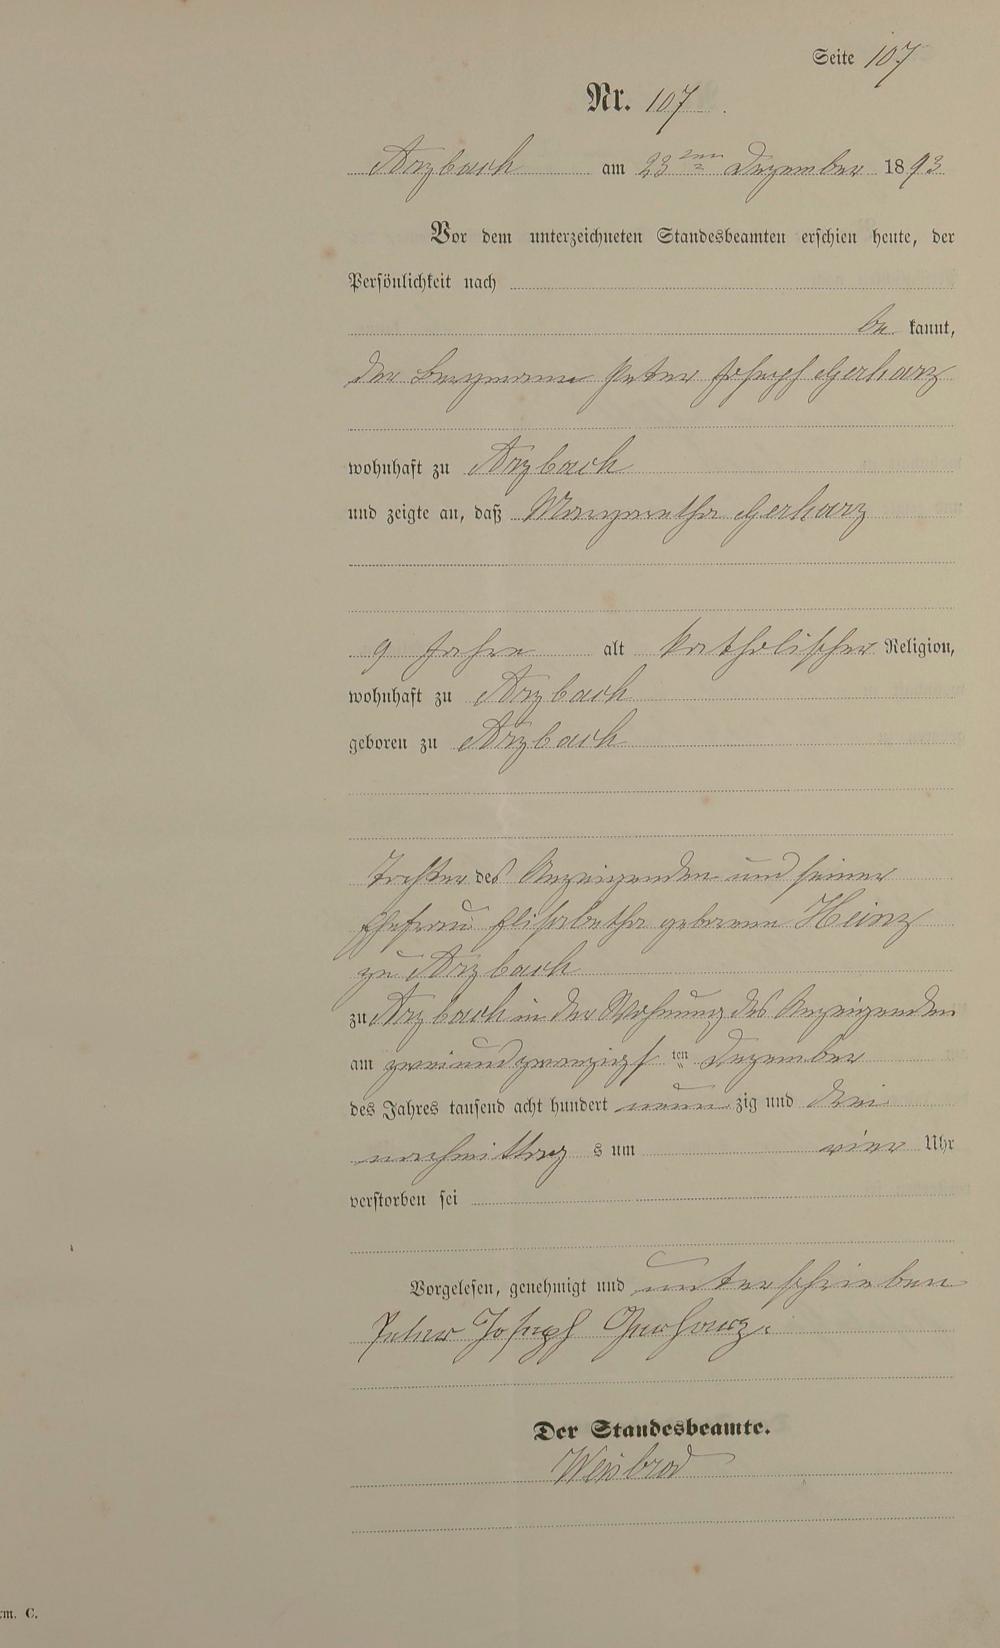 Seite 107
Nr. 107.
Arzbach am 23ten Dezember 1893
Vor dem unterzeichneten Standesbeamten erschien heute, der
Persönlichkeit nach
be kannt,
der Bergmann Peter Joseph Gerharz
wohnhaft zu Arzbach
und zeigte an, daß Margaretha Gerharz
9 Jahre alt katholischer Religion,
wohnhaft zu Arzbach
geboren zu Arzbach
Tochter des Anzeigenden und seiner
Ehefrau Elisabetha geborene Heinz
zu Arzbach
zu Arzbach in der Wohnung des Anzeigenden
am zweiundzwanzigsten Dezember
des Jahres tausend acht hundert neunzig und drei
nachmittags um vier Uhr
verstorben sei
Vorgelesen, genehmigt und unterschrieben
Peter Joseph Gerharz.
Der Standesbeamte.
Weisbrod
rm. C.